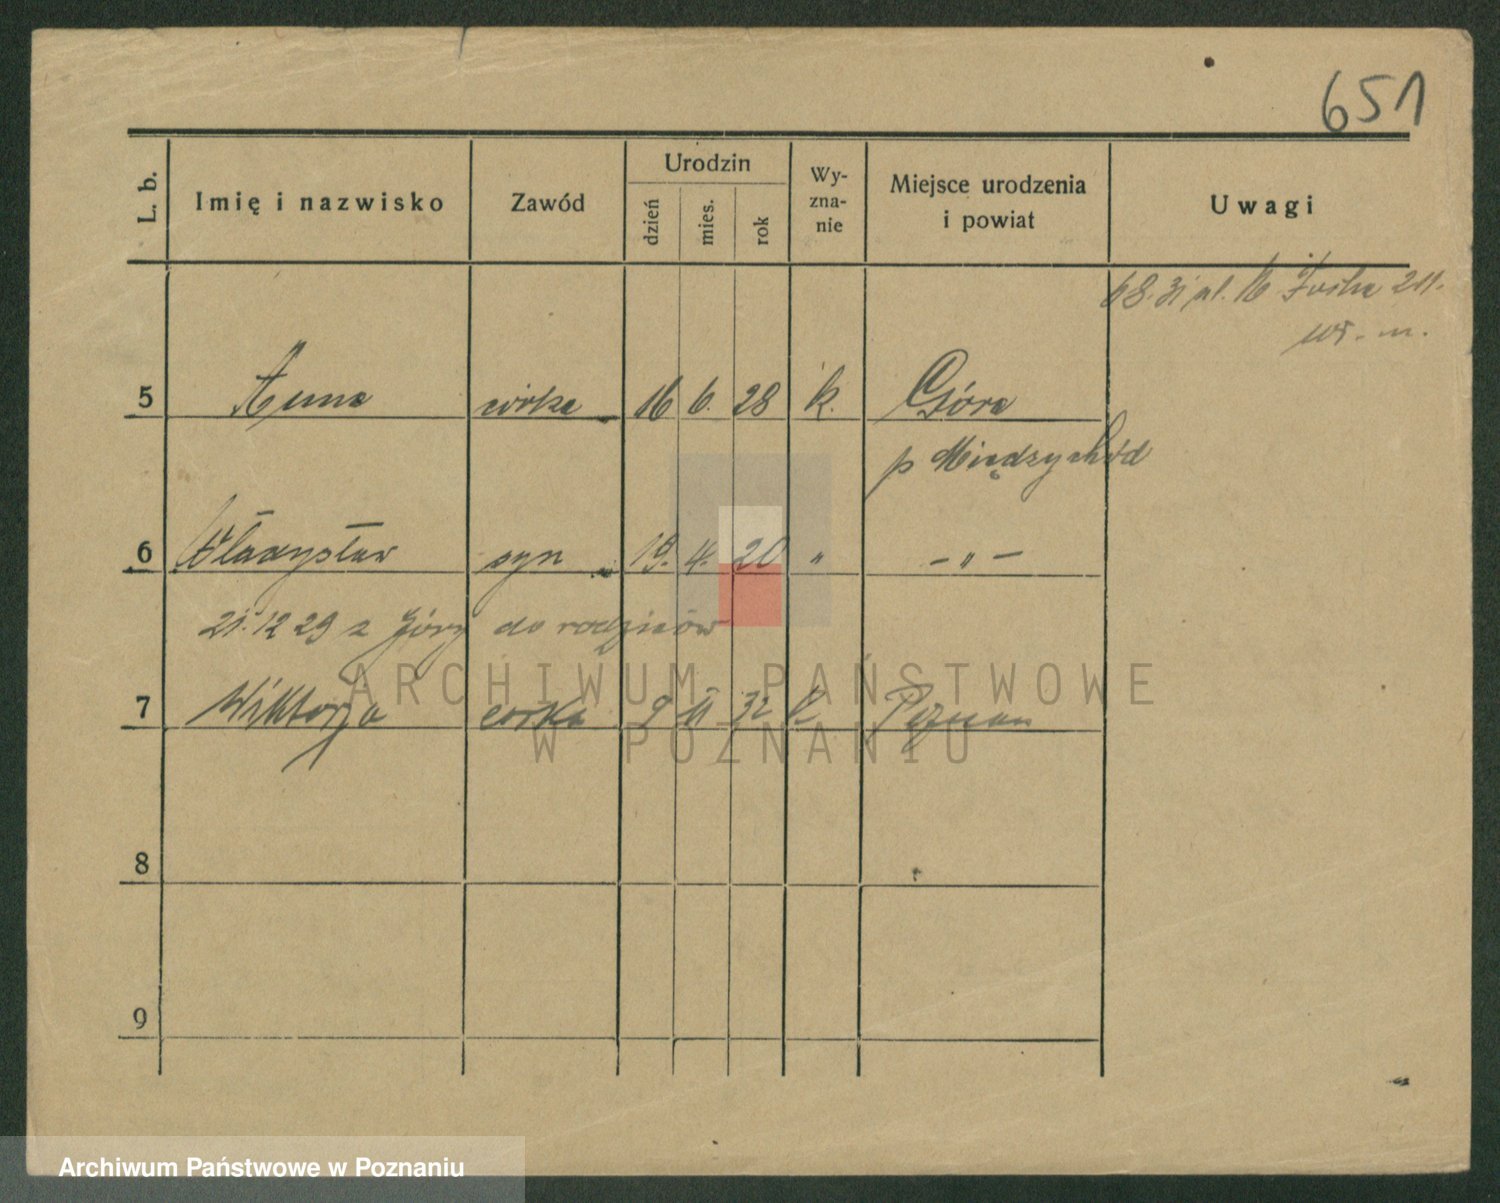 651
L. b. Imię i nazwisko Zawód Urodzin dzień mies. rok Wy-zna-nie Miejsce urodzenia i powiat Uwagi
5 Anna córka 16 6. 28 k. Góra
p Międzychód
6 Władysław syn 19. 4. 20 „ -„-
21.12 29 z Góry do rodziców
7 Wiktorja corka 9 32 k Poznan
8
9
ARCHIWUM PAŃSTWOWE
W POZNANIU
Archiwum Państwowe w Poznaniu